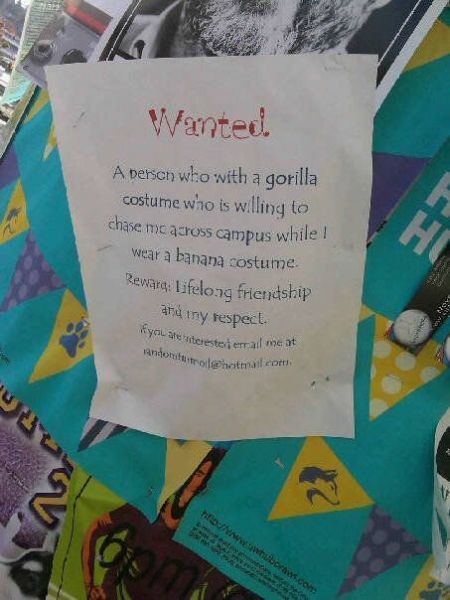 Wanted.
A person who with a gorilla
costume who is willing to
chase me across campus while I
wear a banana costume.
Reward: Lifelong friendship
and my respect.
If you are interested email me at
6pm